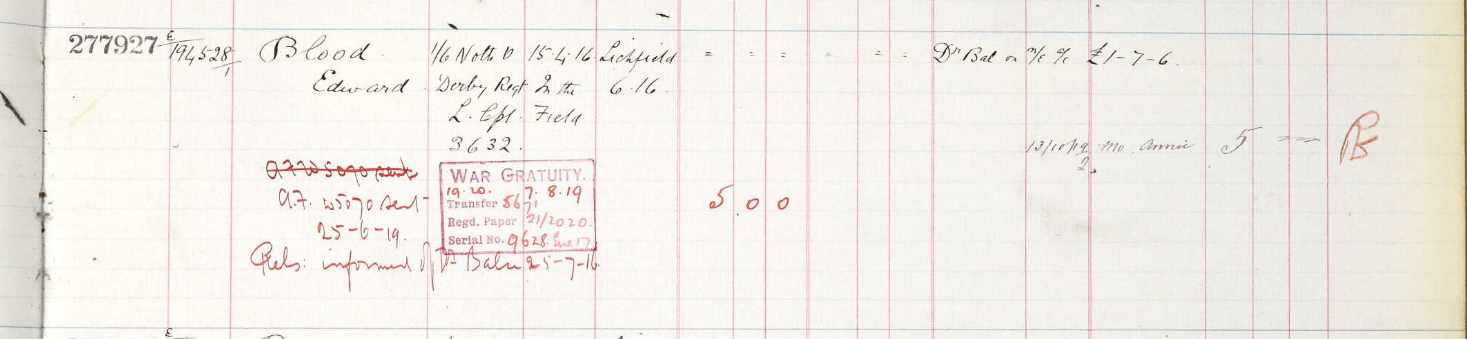 277927 E 194528/1 Blood 1/6 Notts D 15.4.16 Lichfield = = = - - - Dr Bal on N/E a/c £1-7-6.
Edward Derby Regt In the 6.16.
L. Cpl. Field
3632. 13/10/19 Mo. Annie 5 — —
2.
A.F. W5090 sent WAR GRATUITY.
19.20. 7.8.19
A.F. W5070 sent Transfer 5671 5 0 0
Regd. Paper 21/2020.
25-6-19. Serial No. 9628
Rels: informed of Dr Balce 25-7-16
E